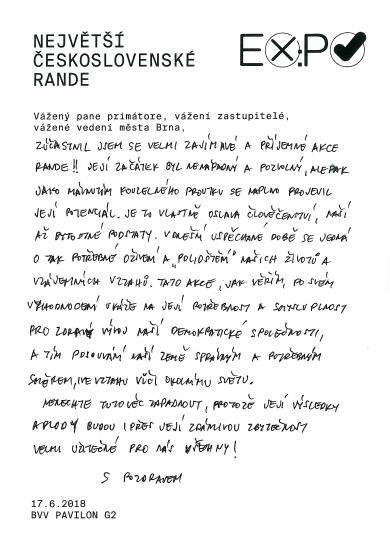 NEJVĚTŠÍ
ČESKOSLOVENSKÉ
RANDE
EXPO
Vážený pane primátore, vážení zastupitelé,
vážené vedení města Brna,
ZÚČASTNIL JSEM SE VELMI ZAJÍMAVÉ A PŘÍJEMNÉ AKCE
RANDE!! JEJÍ ZAČÁTEK BYL NENÁPADNÝ A POZVOLNÝ, ALE PAK
JAKO MÁVNUTÍM KOUZELNÉHO PROUTKU SE NAPLNO PROJEVIL
JEJÍ POTENCIÁL. JE TO VLASTNĚ OSLAVA ČLOVĚČENSTVÍ, NAŠÍ
AŽ PODSTATY. V DNEŠNÍ USPĚCHANÉ DOBĚ SE JEDNÁ
O TAK POTŘEBNÉ OŽIVENÍ A „POLIDŠTĚNÍ" NAŠICH ŽIVOTŮ A
VZÁJEMNÝCH VZTAHŮ. TATO AKCE, JAK VĚŘÍM, PO SVÉM
VYHODNOCENÍ UKÁŽE NA JEJÍ POTŘEBNOST A SMYSLUPLNOST
PRO ZDRAVÝ VÝVOJ NAŠÍ DEMOKRATICKÉ SPOLEČNOSTI,
A TÍM POSOUVÁNÍ NAŠÍ ZEMĚ SPRÁVNÝM A POTŘEBNÝM
SMĚREM, I VE VZTAHU VŮČI OKOLNÍMU SVĚTU.
NENECHTE TUTO VĚC ZAPADNOUT, PROTOŽE JEJÍ VÝSLEDKY
A PLODY BUDOU I PŘES JEJÍ ZDÁNLIVOU ZBYTEČNOST
VELMI UŽITEČNÉ PRO NÁS VŠECHNY!
S POZDRAVEM
17.6.2018
BVV PAVILON G2